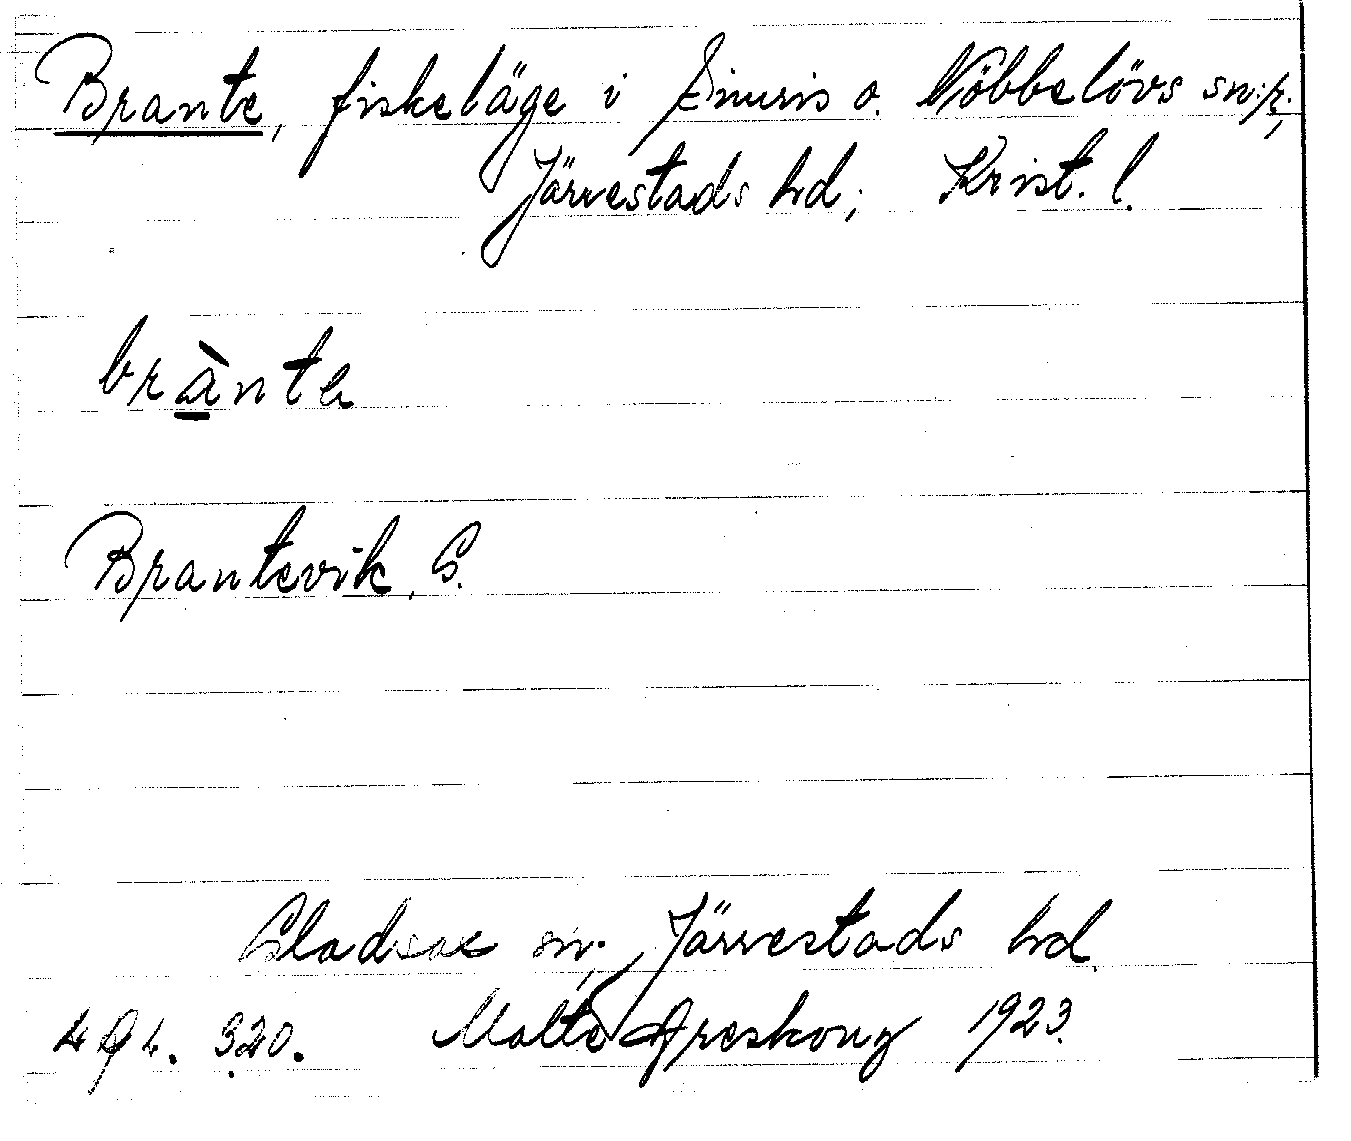 Brante, fiskeläge i Simris o. Nöbbelövs sn:r,
Järrestads hd; Krist. l.
brànte
Brantevik, G.
Gladsax sn, Järrestads hd.
Malte Areskoug 1923.